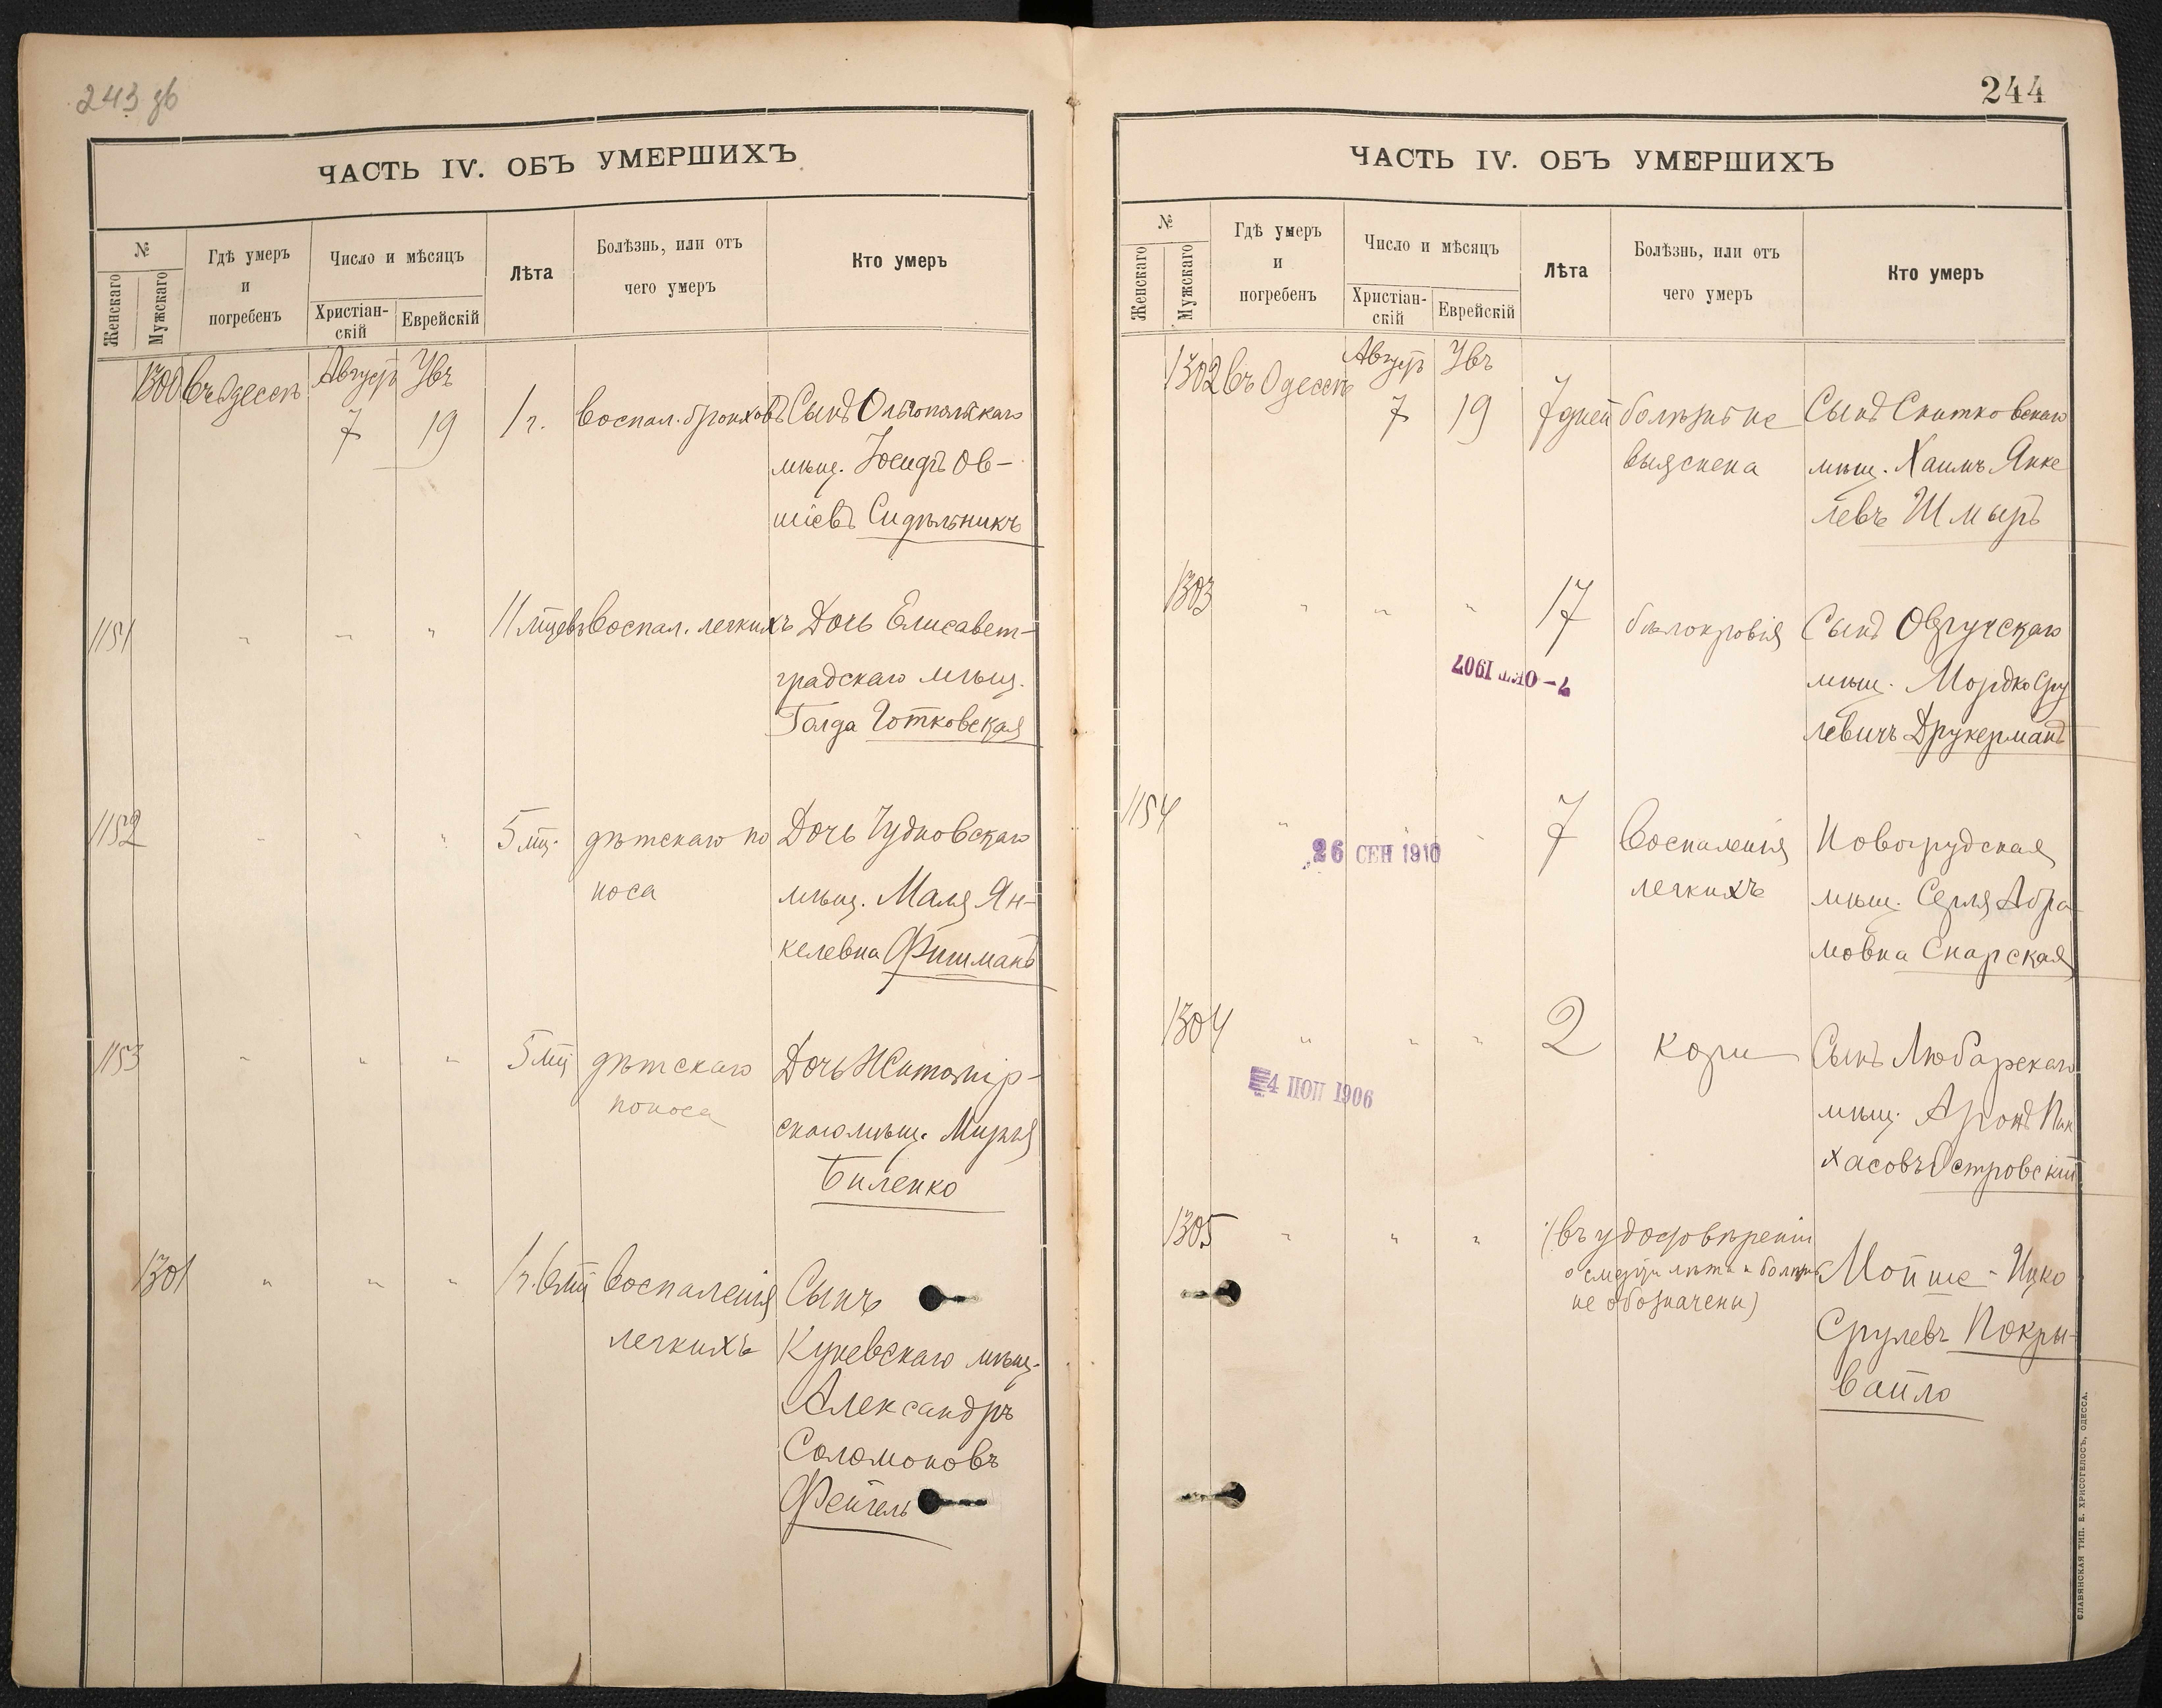 243 об
ЧАСТЬ IV. ОБЪ УМЕРШИХЪ
№
Женскаго
Мужскаго
Гдѣ умеръ
и
погребенъ
Число и мѣсяцъ
Христіан-
скій
Еврейскій
Лѣта
Болѣзнь, или отъ
чего умеръ
Кто умеръ
1300 въ Одессѣ Август Увъ
7 19 1 г. воспал. бронховъ Сынъ Ольгопольскаго
мѣщ. Іосифъ Ов-
шіевъ Сидѣльникъ
1151 " " " 11 мцевъ Воспал. легкихъ Дочь Елисавет-
градскаго мѣщ.
Голда Готковская
1152 " " " 5 мц. дѣтскаго по Дочь Чудновскаго
носа мѣщ. Маля Ян-
келевна Фишманъ
1153 " " " 5 мц дѣтскаго Дочь Житомір-
поноса скаго мѣщ. Мирля
Биленко
1301 " " " 1 г. 6 мц Воспаленія Сынъ
легкихъ Куневскаго мѣщ.
Александръ
Соломоновъ
Фейгель
244
ЧАСТЬ IV. ОБЪ УМЕРШИХЪ
№
Женскаго
Мужскаго
Гдѣ умеръ
и
погребенъ
Число и мѣсяцъ
Христіан-
скій
Еврейскій
Лѣта
Болѣзнь, или отъ
чего умеръ
Кто умеръ
1302 въ Одессѣ Август Увъ
7 19 7 дней болѣзнь не Сынъ Снитковскаго
выяснена мѣщ. Хаимъ Янке
левъ Шмыръ
1303 " " " 17 бѣлокровія Сынъ Овручскаго
7 - ОКТ 1907
мѣщ. Мордко Сру
левичъ Друкерманъ
1154 " " " 7 Воспаленія Новогрудская
26 СЕН 1910
легкихъ мѣщ. Серля Абра-
мовна Снарская
1304 " " " 2 кори Сынъ Любарскаго
4 ІЮЛ 1906
мѣщ. Аронъ Пин
хасовъ Островскій
1305 " " " (въ удостовѣреніи
о смерти лѣта и болѣзнь Мойше-Ицко
не обозначены)
Срулевъ Покры-
вайло
СЛАВЯНСКАЯ ТИП. Е. ХРИСОГЕЛОСЪ, ОДЕССА.